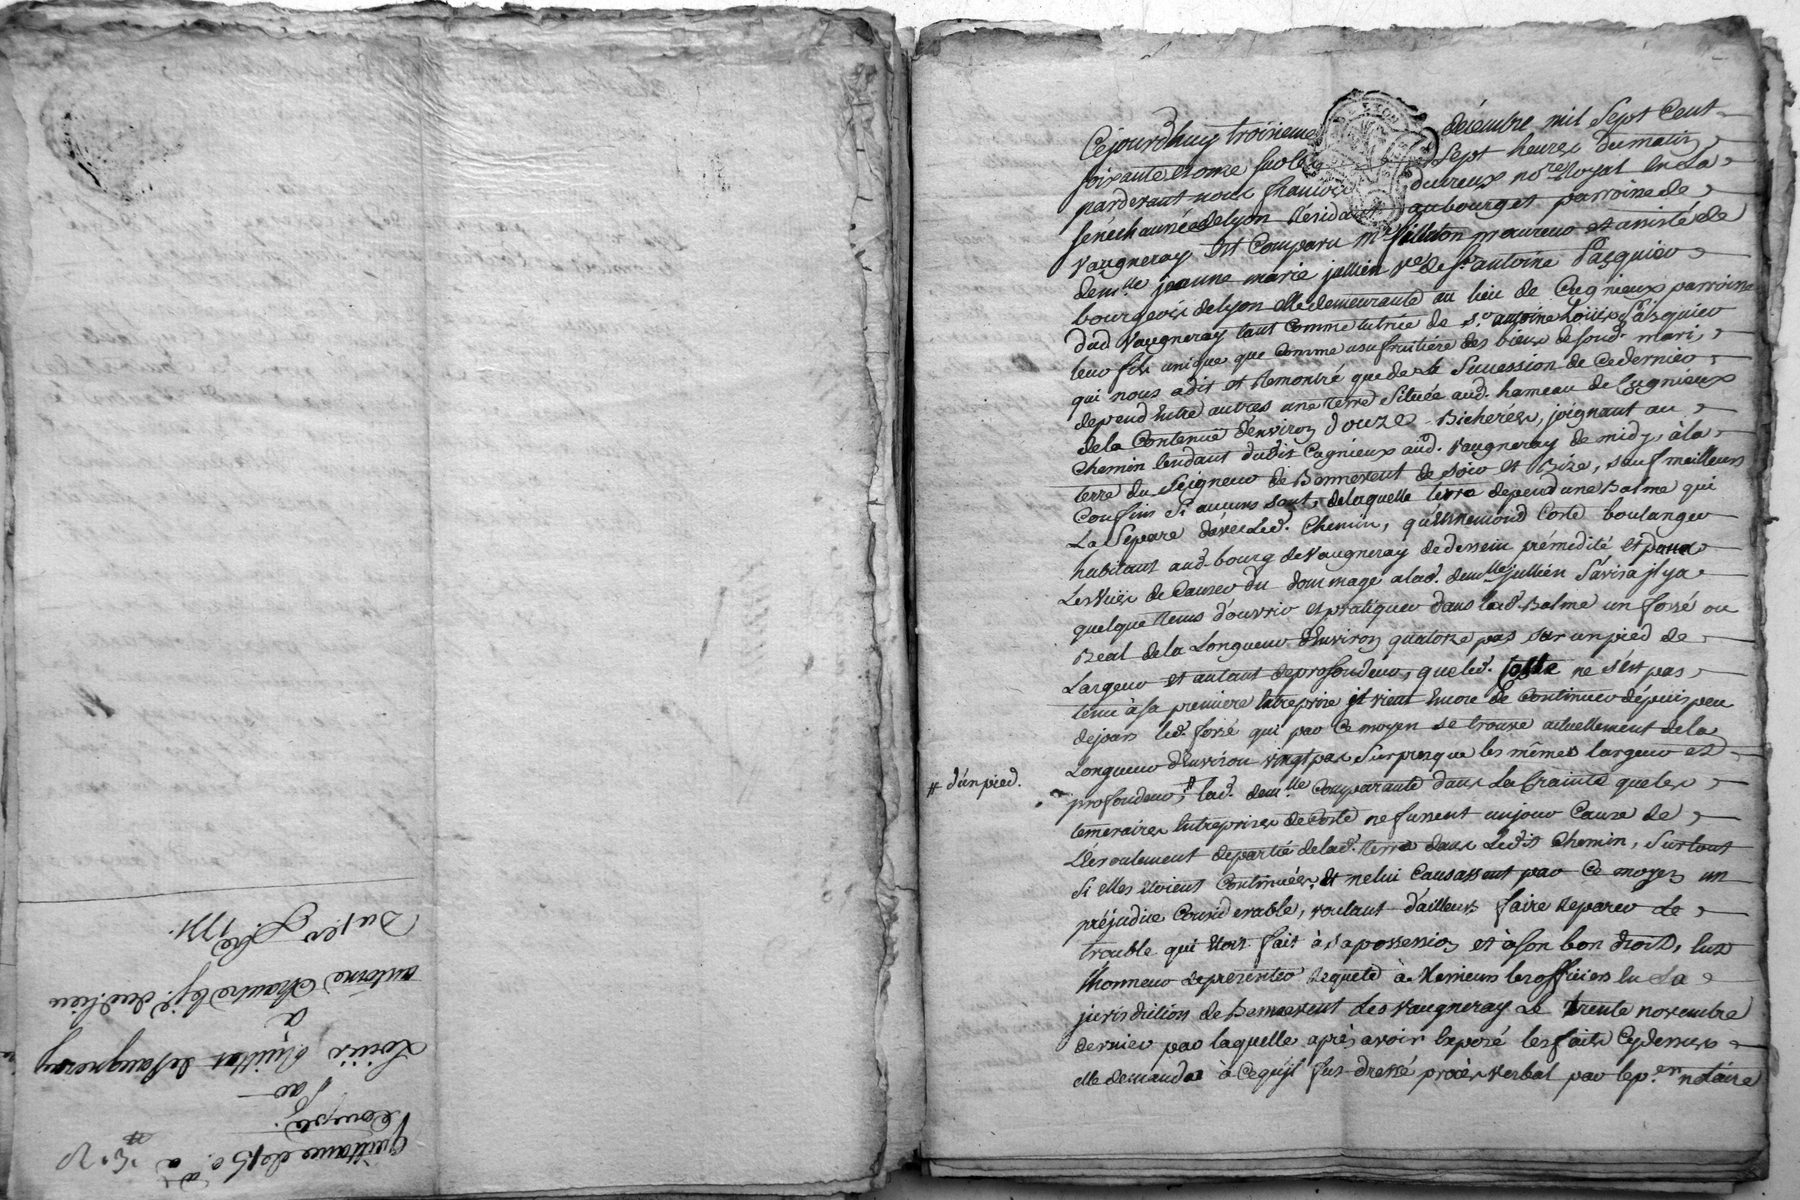 Cejourdhuy troisieme décembre mil Sept Cent
soixante et onze sur les Sept heures du matin
pardevant nous françois dutreux no.re Royal en la
sénéchaussée de lyon Résidant au bourg et parroisse de
Vaugneray Est Comparu M.e procureur et assisté de
dem.lle jeanne marie jullien v.e de S.r antoine Pasquier
bourgeois de lyon elle demeurante au lieu de Cugnieux parroisse
dud Vaugneray tant comme tutrice de S.r antoine Louis Pasquier
leur fils unique que comme usufruitiere des biens de sond. mari,
qui nous a dit et Remontré que de la Succession de ce dernier
depend entre autres une terre Située aud. hameau de Cugnieux
de la Contenue d'environ douze Bicherées, joignant au
Chemin tendant dudit Cugnieux aud. Vaugneray de midy, à la
terre du Seigneur de Bennevent de soir et Bize, sauf meilleurs
Confins Si aucuns sont, de laquelle terre depend une Balme qui
La Sépare d'avec Led. Chemin, qu'Ennemond Coste boulanger
habitant aud. bourg de Vaugneray de dessein prémédité et dans
Les Vuës de Causer du dommage a lad. dem.lle jullien S'avisa jl y a
quelque tems d'ouvrir et pratiquer dans lad. Balme un fossé ou
Beal de la Longueur d'Environ quatorze pas sur un pied de
Largeur et autant de profondeur, que led. Coste ne s'est pas
tenu à sa premiere Entreprise jl vient Encore de Continuer dépuis peu
de jours led. fossé qui par ce moyen se trouve actuellement de la
Longueur d'Environ vingt pas Sur presque les mêmes largeur et
# d'un pied.
profondeur,# lad. dem.lle Comparante dans La Crainte que les
temeraires Entreprises de Coste ne fussent un jour Cause de
L'Eroulement de partie de lad. terre dans Ledit Chemin, Surtout
Si elles étoient Continuées, et ne lui Causassent par Ce moyen un
préjudice Considerable, voulant d'ailleurs faire Reparer le
trouble qui étoit fait à sa possession et à son bon droit, Eut
l'honneur de presenter Requete à Messieurs les officiers en La
jurisdiction de Bennevent des Vaugneray Le trente novembre
dernier par laquelle après avoir Exposé les faits Cydessus
elle demanda à Ce qu'jl fut dressé procès Verbal par le p.en notaire
Quittance de 150.
Consentie
par
Louis Quillat de Vaugneray
a
antoine Chantre dud. lieu
Du 1.er 1771.